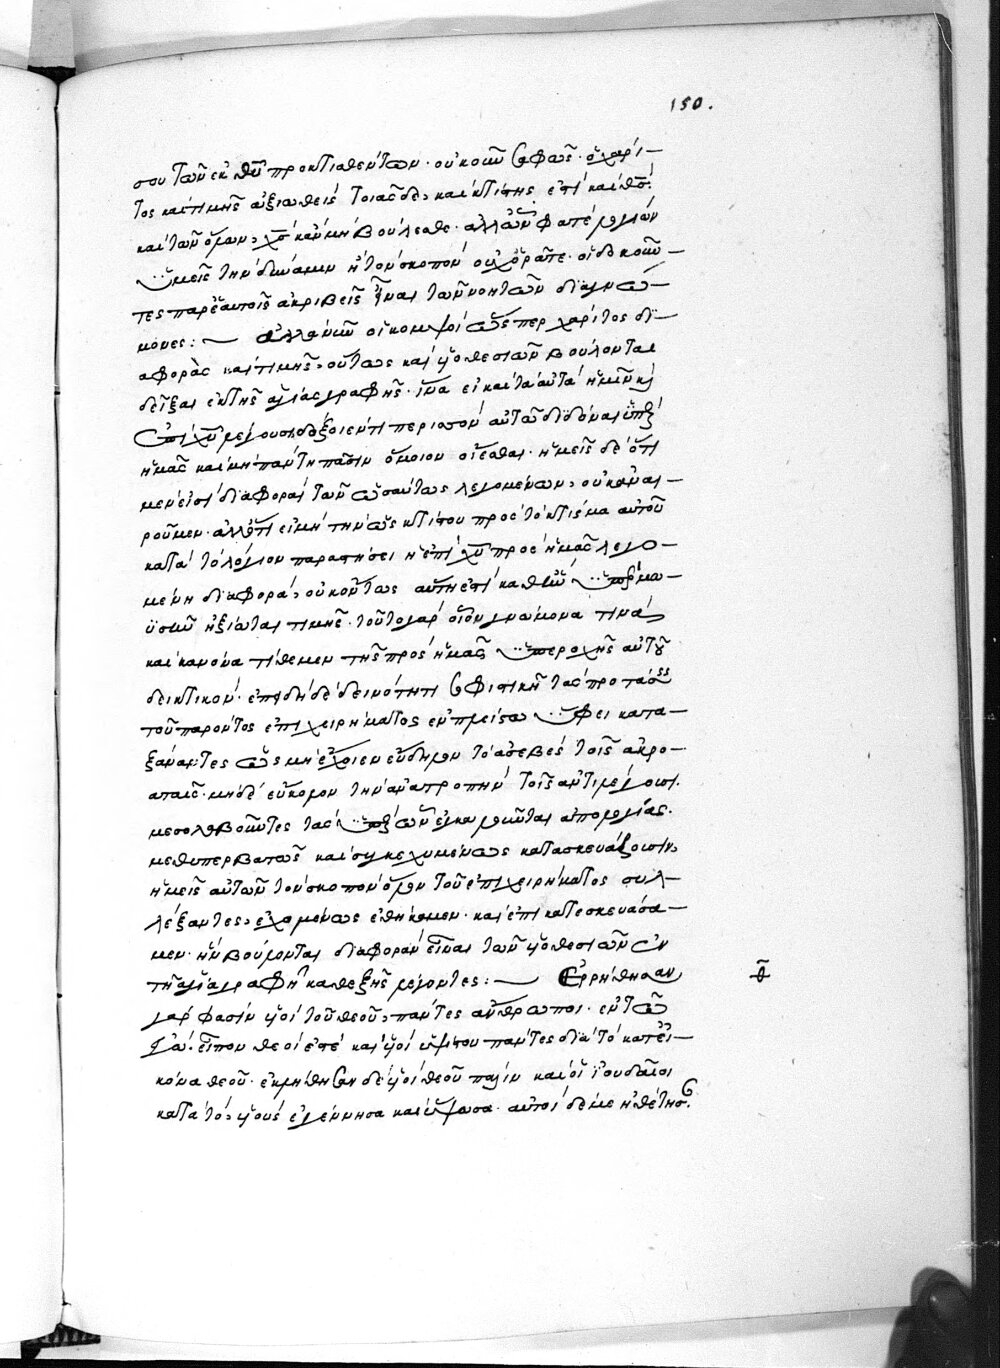 150.
σου τῶν ἐκ θεοῦ προκτισθέντων. οὐκοῦν σαφῶς. ὁ χάρι-
τος καὶ τιμῆς ἀξιωθεὶς τοιᾶσδε, καὶ κτίστης ἐστὶ καὶ θεός.
καὶ τῶν ὅλων, κἂν μὴ βούλεσθε. ἀλλ' ὧν φατὲ λογίων
ὑμεῖς τὴν δύναμιν ἢ τὸν σκοπὸν οὐχ ὁρᾶτε. οἱ δοκοῦν-
τες παρ' ἑαυτοῖς ἀκριβεῖς εἶναι τῶν νοητῶν διαγνώ-
μονες :~ Ἀλλὰ νῦν οἱ κομψοὶ ὥσπερ χάριτος δι-
αφορὰς καὶ τιμῆς, οὕτως καὶ υἱοθεσιῶν βούλονται
δεῖξαι ἐκ τῆς ἁγίας γραφῆς. ἵνα εἰ καὶ τὰ αὐτὰ ἡμῖν καὶ
ἐπὶ Χριστοῦ λέγουσι δόξοιέν τι περισσὸν αὐτῷ διδόναι ὑπὲρ
ἡμᾶς καὶ μὴ πάντῃ πᾶσιν ὅμοιον οἴεσθαι. ἡμεῖς δὲ ὅτι
μέν εἰσι διαφοραὶ τῶν ὡσαύτως λεγομένων, οὐκ ἀναι-
ροῦμεν. ἀλλ' ὅτι εἰ μὴ τὴν ὡς κτίστου πρὸς τὸ κτίσμα αὐτοῦ
κατὰ τὸ λόγιον παραστήσει ἡ ἐπὶ Χριστοῦ πρὸς ἡμᾶς λεγο-
μένη διαφορὰ, οὐκ οὕτως αὕτη ἐστὶ καθ'
ἠξίωται τιμῆς. τοῦτο γὰρ οἷον γνώμονα τινὰ
καὶ κανόνα τίθεμεν τῆς πρὸς ἡμᾶς ὑπεροχῆς αὐτοῦ
δεικτικόν. ἐπειδὴ δὲ δεινότητι σοφιστικῇ τὰς προτάσεις
τοῦ παρόντος ἐπιχειρήματος ἐν πλείστῳ ὕφει κατα-
ξάναντες ὡς μὴ ἔχοιεν εὔδηλον τὸ ἀσεβὲς τοῖς ἀκρο-
αταῖς. μηδὲ εὔκολον τὴν ἀνατροπὴν τοῖς ἀντιλέγουσι.
μεσολαβοῦντες τὰς ὑπὲρ ὧν ἐγκαλοῦνται ἀπολογίας.
μεθυπερβατῶς καὶ συγκεχυμένως κατασκευάζουσιν,
ἡμεῖς αὐτῶν τὸν σκοπὸν ὅλον τοῦ ἐπιχειρήματος συλ-
λέξαντες, ἐχομένως ἐθήκαμεν. καὶ ἐπικατεσκευάσα-
μεν. ἣν βούλονται διαφορὰν εἶναι τῶν υἱοθεσιῶν ἐν
τῇ ἁγίᾳ γραφῇ καθεξῆς λέγοντες :~ Ἐρρήθησαν
γὰρ φασὶν υἱοὶ τοῦ θεοῦ, πάντες ἄνθρωποι. ἐν τῷ
Ἐγὼ εἶπον θεοί ἐστέ καὶ υἱοὶ ὑψίστου πάντες διὰ τὸ κατ' εἰ-
κόνα θεοῦ. ἐκλήθησαν δὲ υἱοὶ θεοῦ πάλιν καὶ οἱ ἰουδαῖοι
κατὰ τὸ, υἱοὺς ἐγέννησα καὶ ὕψωσα. αὐτοὶ δέ με ἠθέτησαν.